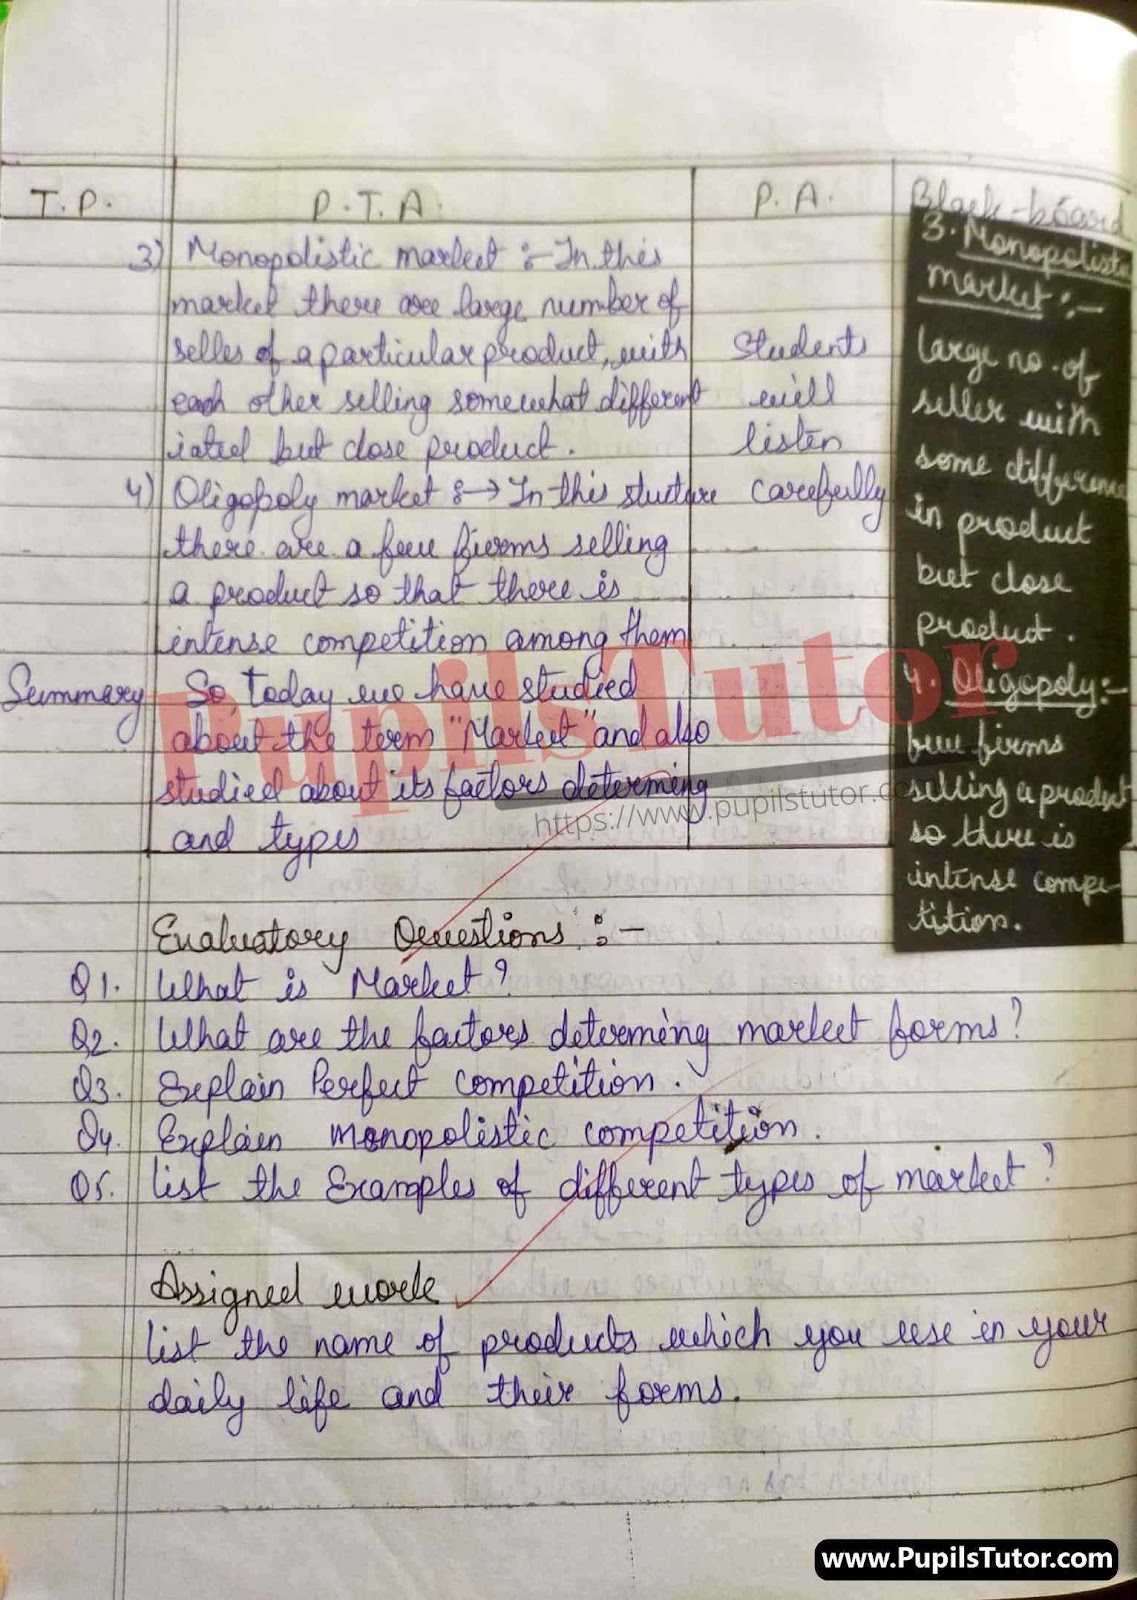 T.P.
P.T.A.
P.A.
Black-board
3) Monopolistic market :- In this
market there are large number of
selles of a particular product, with
each other selling somewhat different
iated but close product.
4) Oligopoly market :→ In this stucture
there are a few firms selling
a product so that there is
intense competition among them
Summary
So, today we have studied
about the term "Market" and also
studied about its factors determing
and types
Students
will
listen
carefully
3. Monopolistic
market :-
large no. of
seller with
some difference
in product
but close
product.
4. Oligopoly:-
few firms
selling a product
so there is
intense compe-
tition.
PupilsTutor
https://www.pupilstutor.co
Evaluatory Questions :-
Q1. What is Market?
Q2. What are the factors determing market forms?
Q3. Explain Perfect competition.
Q4. Explain monopolistic competition.
Q5. list the Examples of different types of market?
Assigned work
list the name of products which you use in your
daily life and their forms.
www.PupilsTutor.com